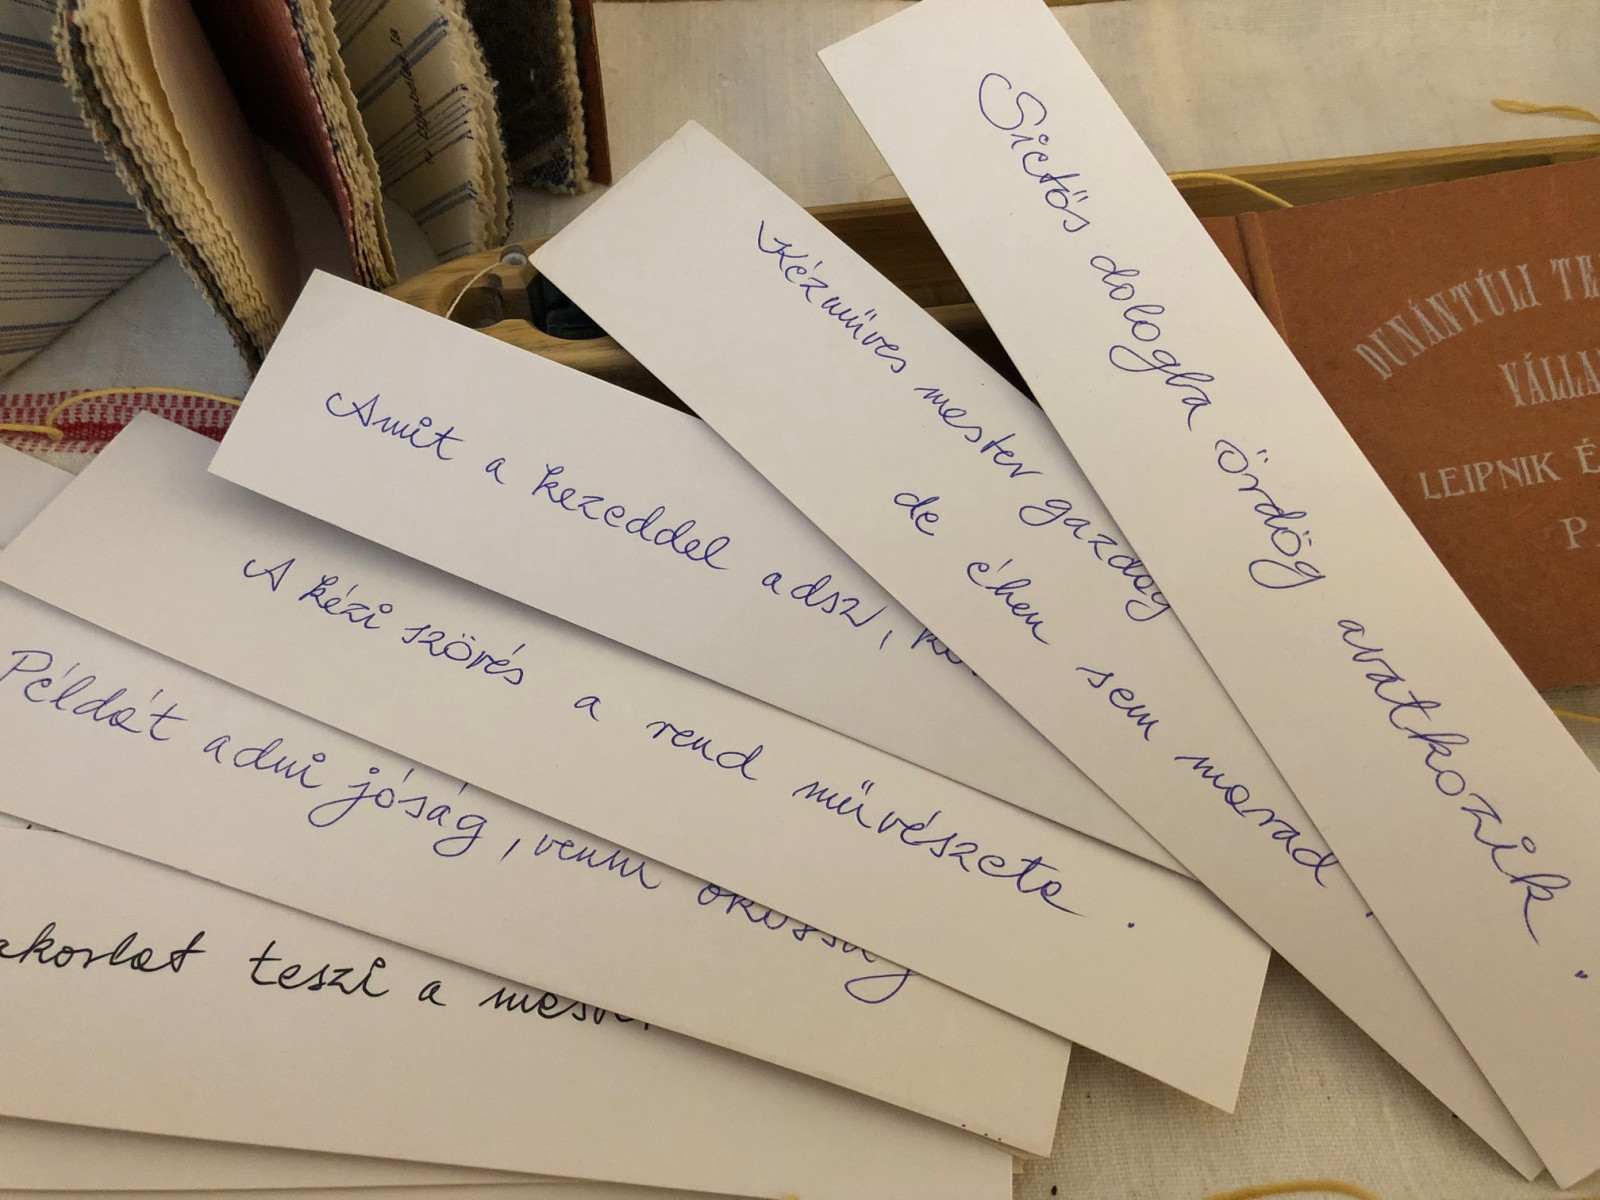 Sietős dologba ördög avatkozik.
Kézműves mester gazdag
de éhen sem marad.
Amit a kezeddel adsz,
A kézi szövés a rend művészete.
Példát adni jóság, venni okosság
teszi a
DUNÁNTÚLI
LEIPNIK